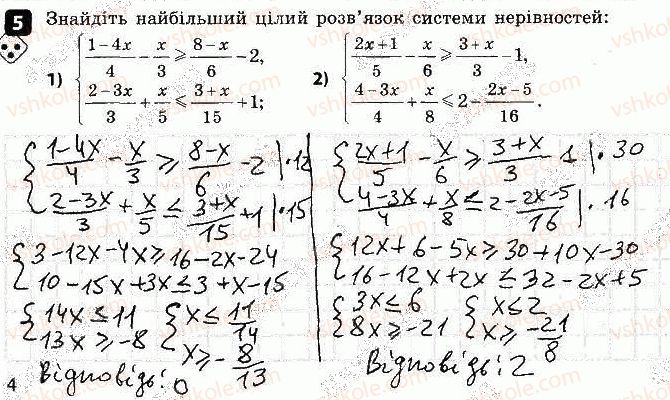 5 Знайдіть найбільший цілий розв'язок системи нерівностей:
1) { (1-4x)/4 - x/3 ⩾ (8-x)/6 - 2,
(2-3x)/3 + x/5 ⩽ (3+x)/15 + 1;
2) { (2x+1)/5 - x/6 ⩾ (3+x)/3 - 1,
(4-3x)/4 + x/8 ⩽ 2 - (2x-5)/16.
{ (1-4x)/4 - x/3 ⩾ (8-x)/6 - 2 |·12
(2-3x)/3 + x/5 ≤ (3+x)/15 + 1 |·15
{ 3-12x-4x ⩾ 16-2x-24
10-15x+3x ≤ 3+x-15
{ 14x ≤ 11
13x ⩾ -8
{ x ≤ 11/14
x ⩾ -8/13
Відповідь: 0
{ (2x+1)/5 - x/6 ⩾ (3+x)/3 - 1 |·30
(4-3x)/4 + x/8 ≤ 2 - (2x-5)/16 |·16
{ 12x+6-5x ⩾ 30+10x-30
16-12x+2x ≤ 32-2x+5
{ 3x ≤ 6
8x ⩾ -21
{ x ≤ 2
x ⩾ -21/8
Відповідь: 2
4